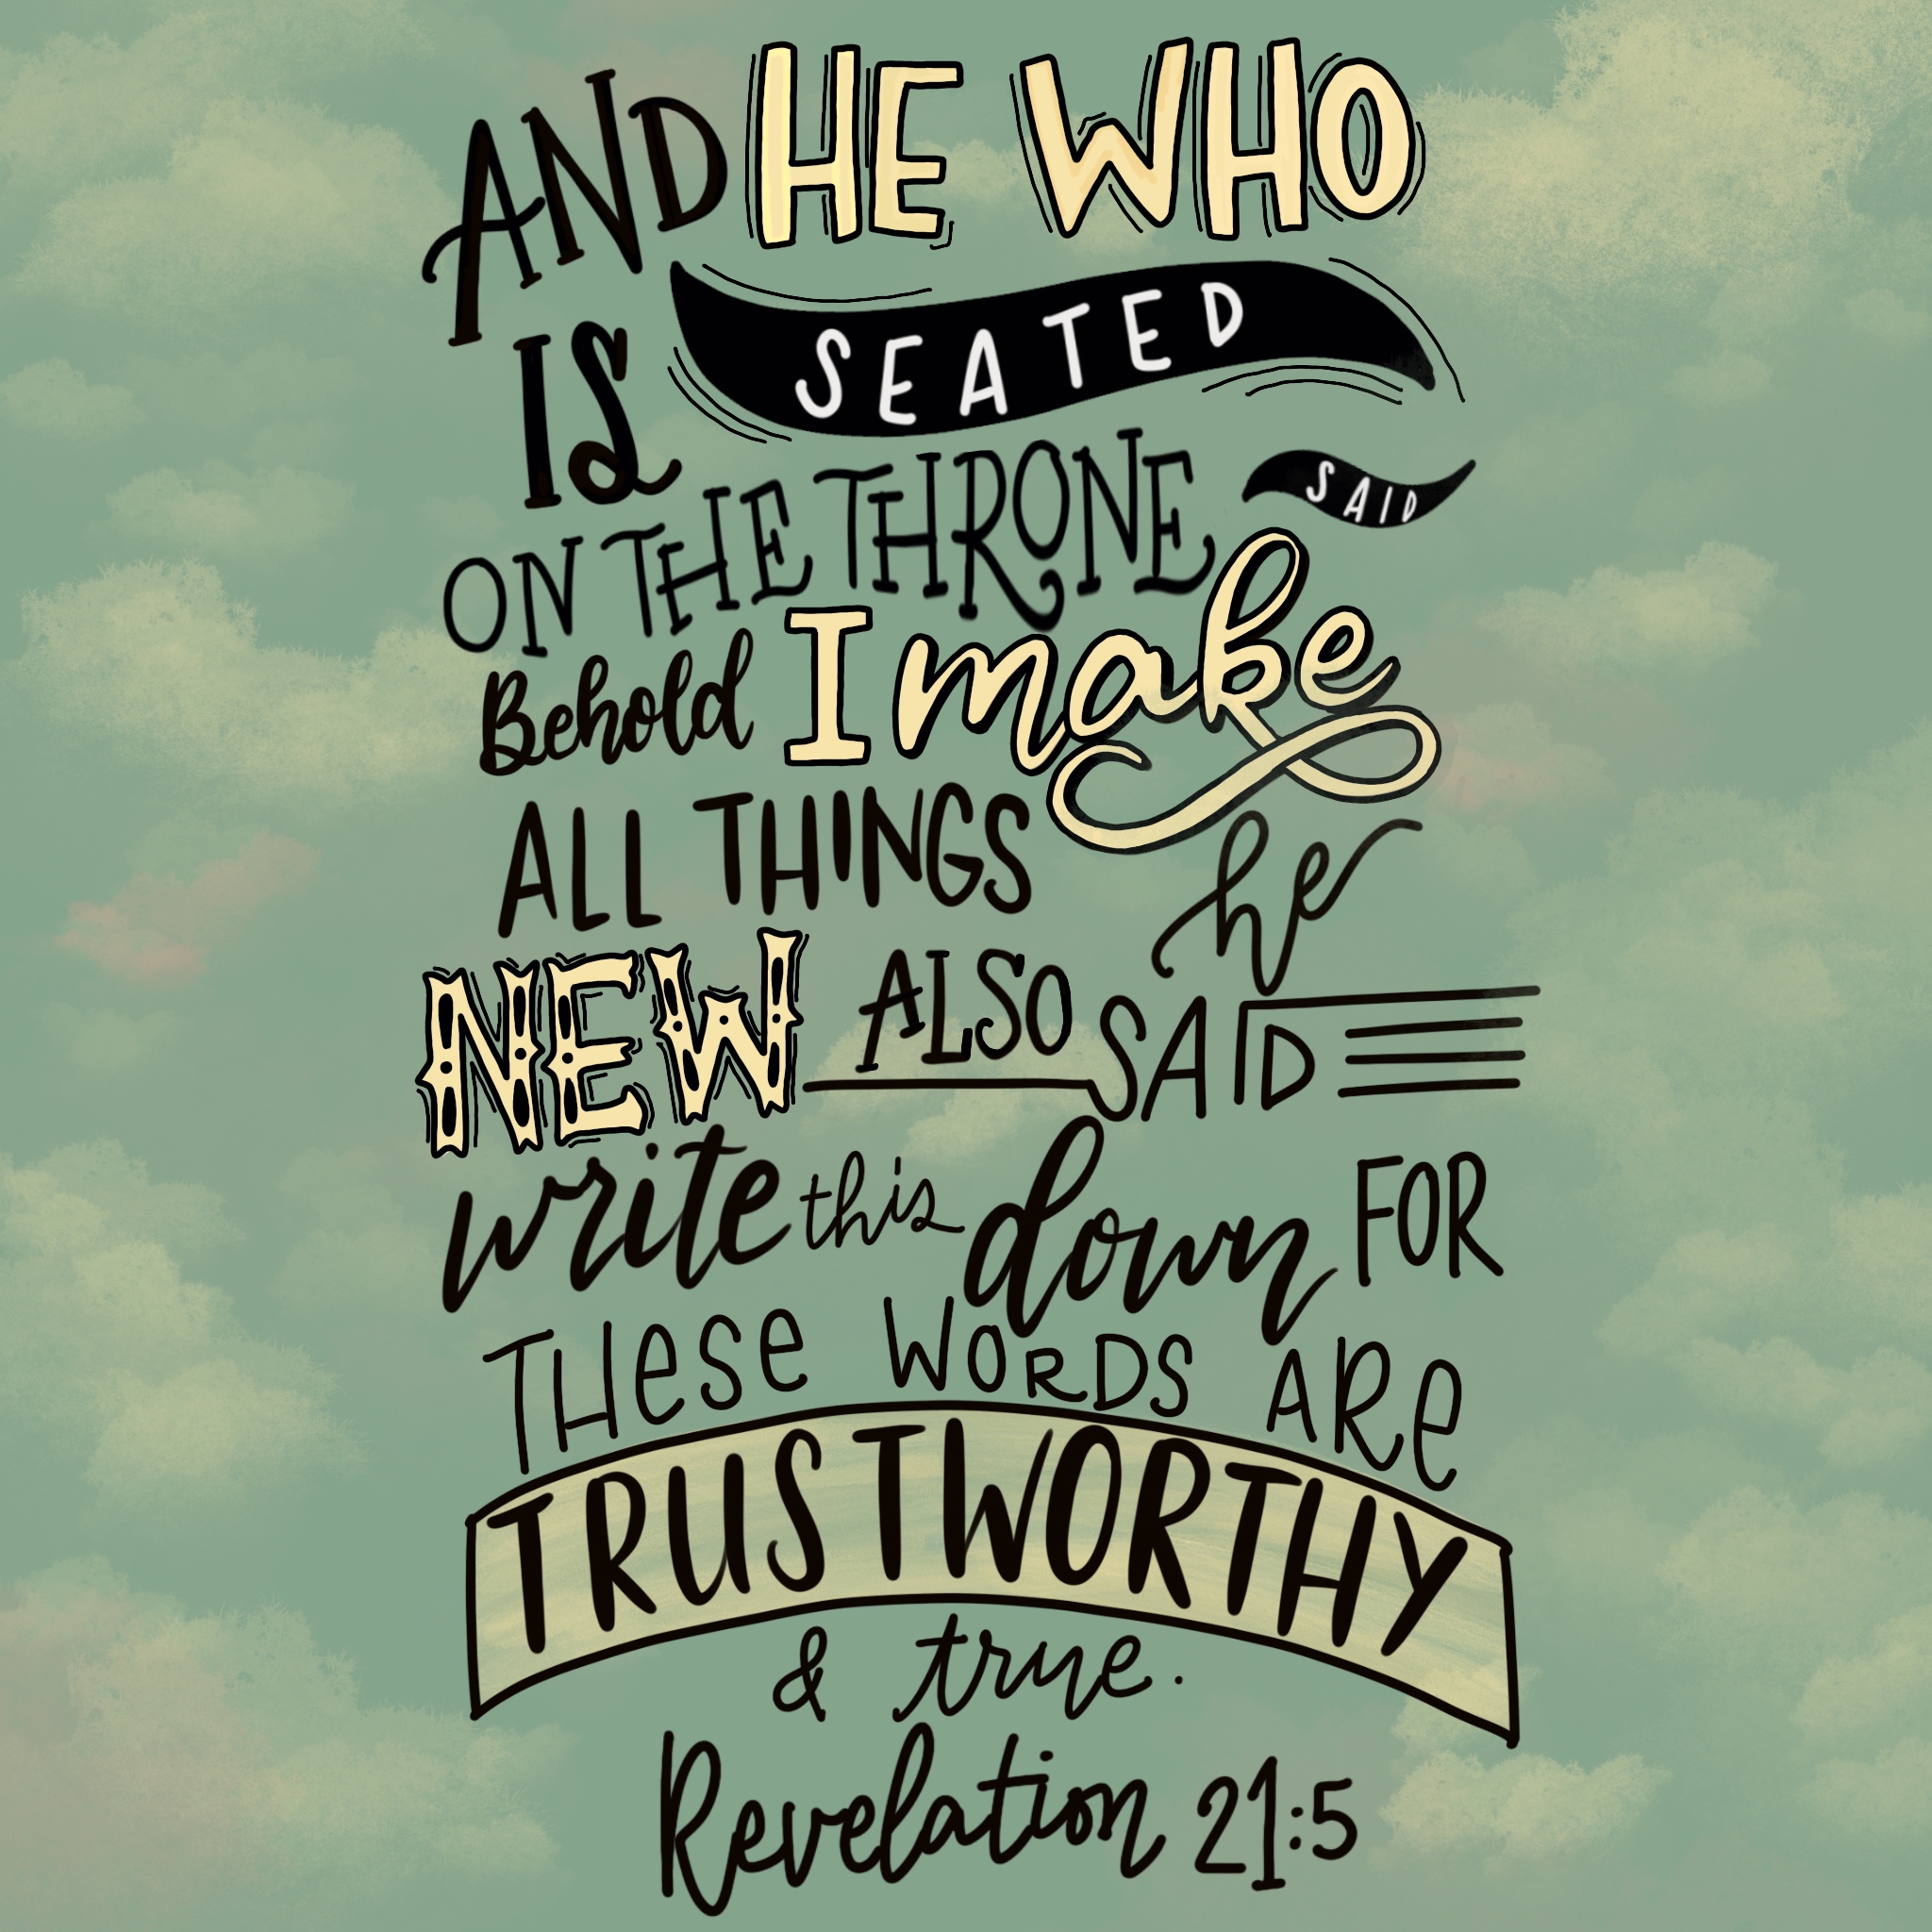 AND HE WHO
IS SEATED
ON THE THRONE SAID
Behold I make
ALL THINGS he
NEW ALSO SAID
write this down FOR
THese WORDS ARe
TRUSTWORTHY
& true.
Revelation 21:5